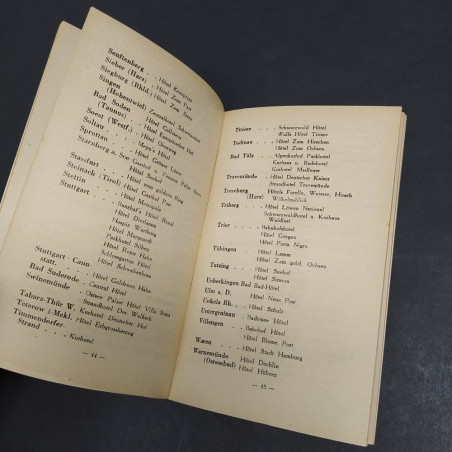 Senftenberg . . Hôtel Kronprinz
Sieber (Harz) . Hôtel Zum Pass
Siegburg (Rhld.) Hôtel Zum Stern
Singen
(Hohentwiel) Zentralhôtel Schweizerhof
Bad Soden
(Taunus) . . Hôtel Colloseus
Soest (Westf.) . Hôtel Overweg
Soltau . . . . Meyn's Hôtel
Sprottau . . . Hôtel Goldener Löwe
Starnberg a. See
Hôtel Seehof
Stassfurt . . Hôtel zum goldnen Ring
Steinach (Tirol) Hôtel Gasthof Post
Stettin . . . Hôtel Metropole
Stuttgart . . .
Hôtel Dierlamm
Hospiz Wartburg
Hôtel Marquardt
Parkhôtel Silber
Hôtel Roter Hahn
Schlossgarten Hôtel
Hôtel Schwabenhaus
Stuttgart Cann-
statt. . . . Hôtel Goldenen Hahn
Bad Suderode . Hôtel Central
Swinemünde . . Ostsee Palast Hôtel Villa Sena
Strandhôtel Drei Wallfisch
Tabarz-Thür W. Kurhotel Deutscher Hof
Teterow i-Mekl. Hôtel Erbgrossherzog
Timmendorfer.
Strand . . . Kurhotel
— 44 —
Titisee . . . Schwarzwald Hôtel
Wolfs Hôtel Titisee
Todtnau . . . Hôtel Zum Hirschen
Hôtel Zum Ochsen
Bad Tölz . . Alpenhof Parkhotel
Kurhaus u. Badehotel
Kurhotel Malfoner
Travemünde . . Hôtel Deutscher Kaiser
Strandhotel Travemünde
Treseburg . . Hôtels Forelle, Weisser, Hirsch
(Harz) Wilhelmsblick
Triberg . . . Hôtel Löwen National
Schwarzwaldhotel u. Kurhaus
Waldlust
Trier . . . . Bahnhofshotel
Hôtel Cörgen
Hôtel Porta Nigra
Tübingen . . . Hôtel Lamm
Hôtel Zum gold. Ochsen
Tutzing . . . Hôtel Seehof
Hôtel Simson
Ueberkingen Bad Bad-Hôtel
Ulm a. D. . . Hôtel Neue Post
Unkels Rh. . . Hôtel Schulz
Untergrainau . . Badersee Hôtel
Villengen . . . Bahnhof Hôtel
Hôtel Blume Post
Waren . . . . Hôtel Stadt Hamburg
Warnemünde . . Hôtel Dechlin
(Ostseebad) Hôtel Hübner
— 45 —